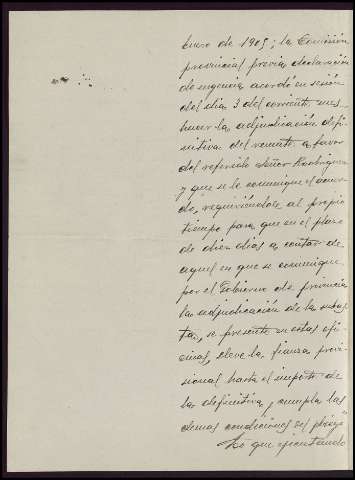 Enero de 1905; la Comisión
provincial previa declaración
de urgencia acordó en sesión
del dia 3 del corriente mes
hacer la adjudicación defi-
nitiva del remate a favor
del referido señor Rodriguez
y que se le comunique el acuer-
do, requiriéndole al propio
tiempo para que en el plazo
de diez dias a contar de
aquel en que se comunique
por el Gobierno de provincia
la adjudicación de la subas-
ta, se presente en estas ofi-
cinas, eleve la fianza provi-
sional hasta el importe de
la definitiva y cumpla las
demas condiciones del pliego"
Lo que ejecutando